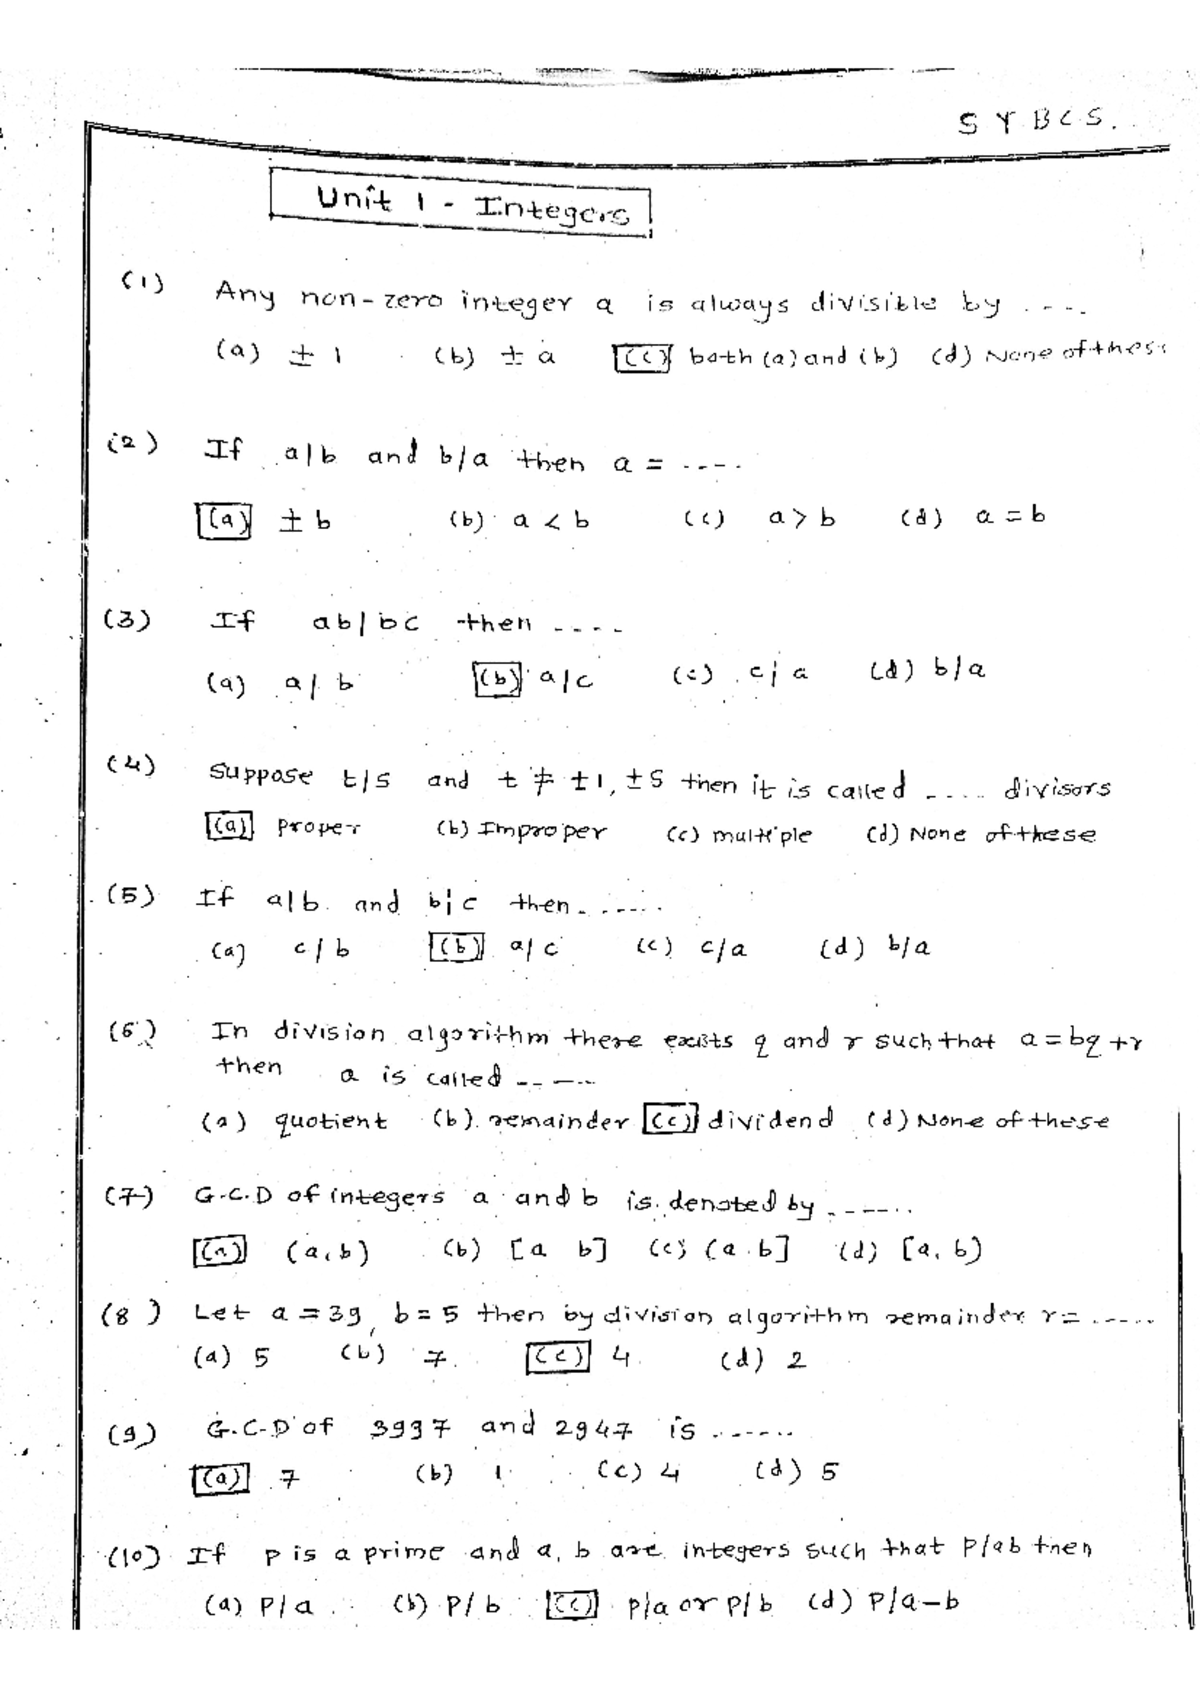 S Y B C S.
Unit 1 - Integers
(1) Any non-zero integer a is always divisible by ....
(a) ± 1 (b) ± a (c) both (a) and (b) (d) None of these
(2) If a|b and b/a then a = ----.
(a) ± b (b) a < b (c) a > b (d) a = b
(3) If ab| bc then ----
(a) a| b (b) a|c (c) c| a (d) b/a
(4) Suppose t/s and t ≠ ±1, ±S then it is called .... divisors
(a) proper (b) Improper (c) multiple (d) None of these
(5) If a|b and b|c then ------
(a) c/b (b) a/c (c) c/a (d) b/a
(6) In division algorithm there exits q and r such that a = bq + r
then a is called -----
(a) quotient (b) remainder (c) dividend (d) None of these
(7) G.C.D of integers a and b is denoted by ------
(a) (a, b) (b) [a b] (c) (a . b] (d) [a, b)
(8) Let a = 39, b = 5 then by division algorithm remainder r = ------
(a) 5 (b) 7. (c) 4. (d) 2
(9) G.C.D of 3997 and 2947 is ------
(a) 7 (b) 1 (c) 4 (d) 5
(10) If p is a prime and a, b are integers such that P/ab then
(a) P/a (b) P/b (c) p/a or p/b (d) P/a-b